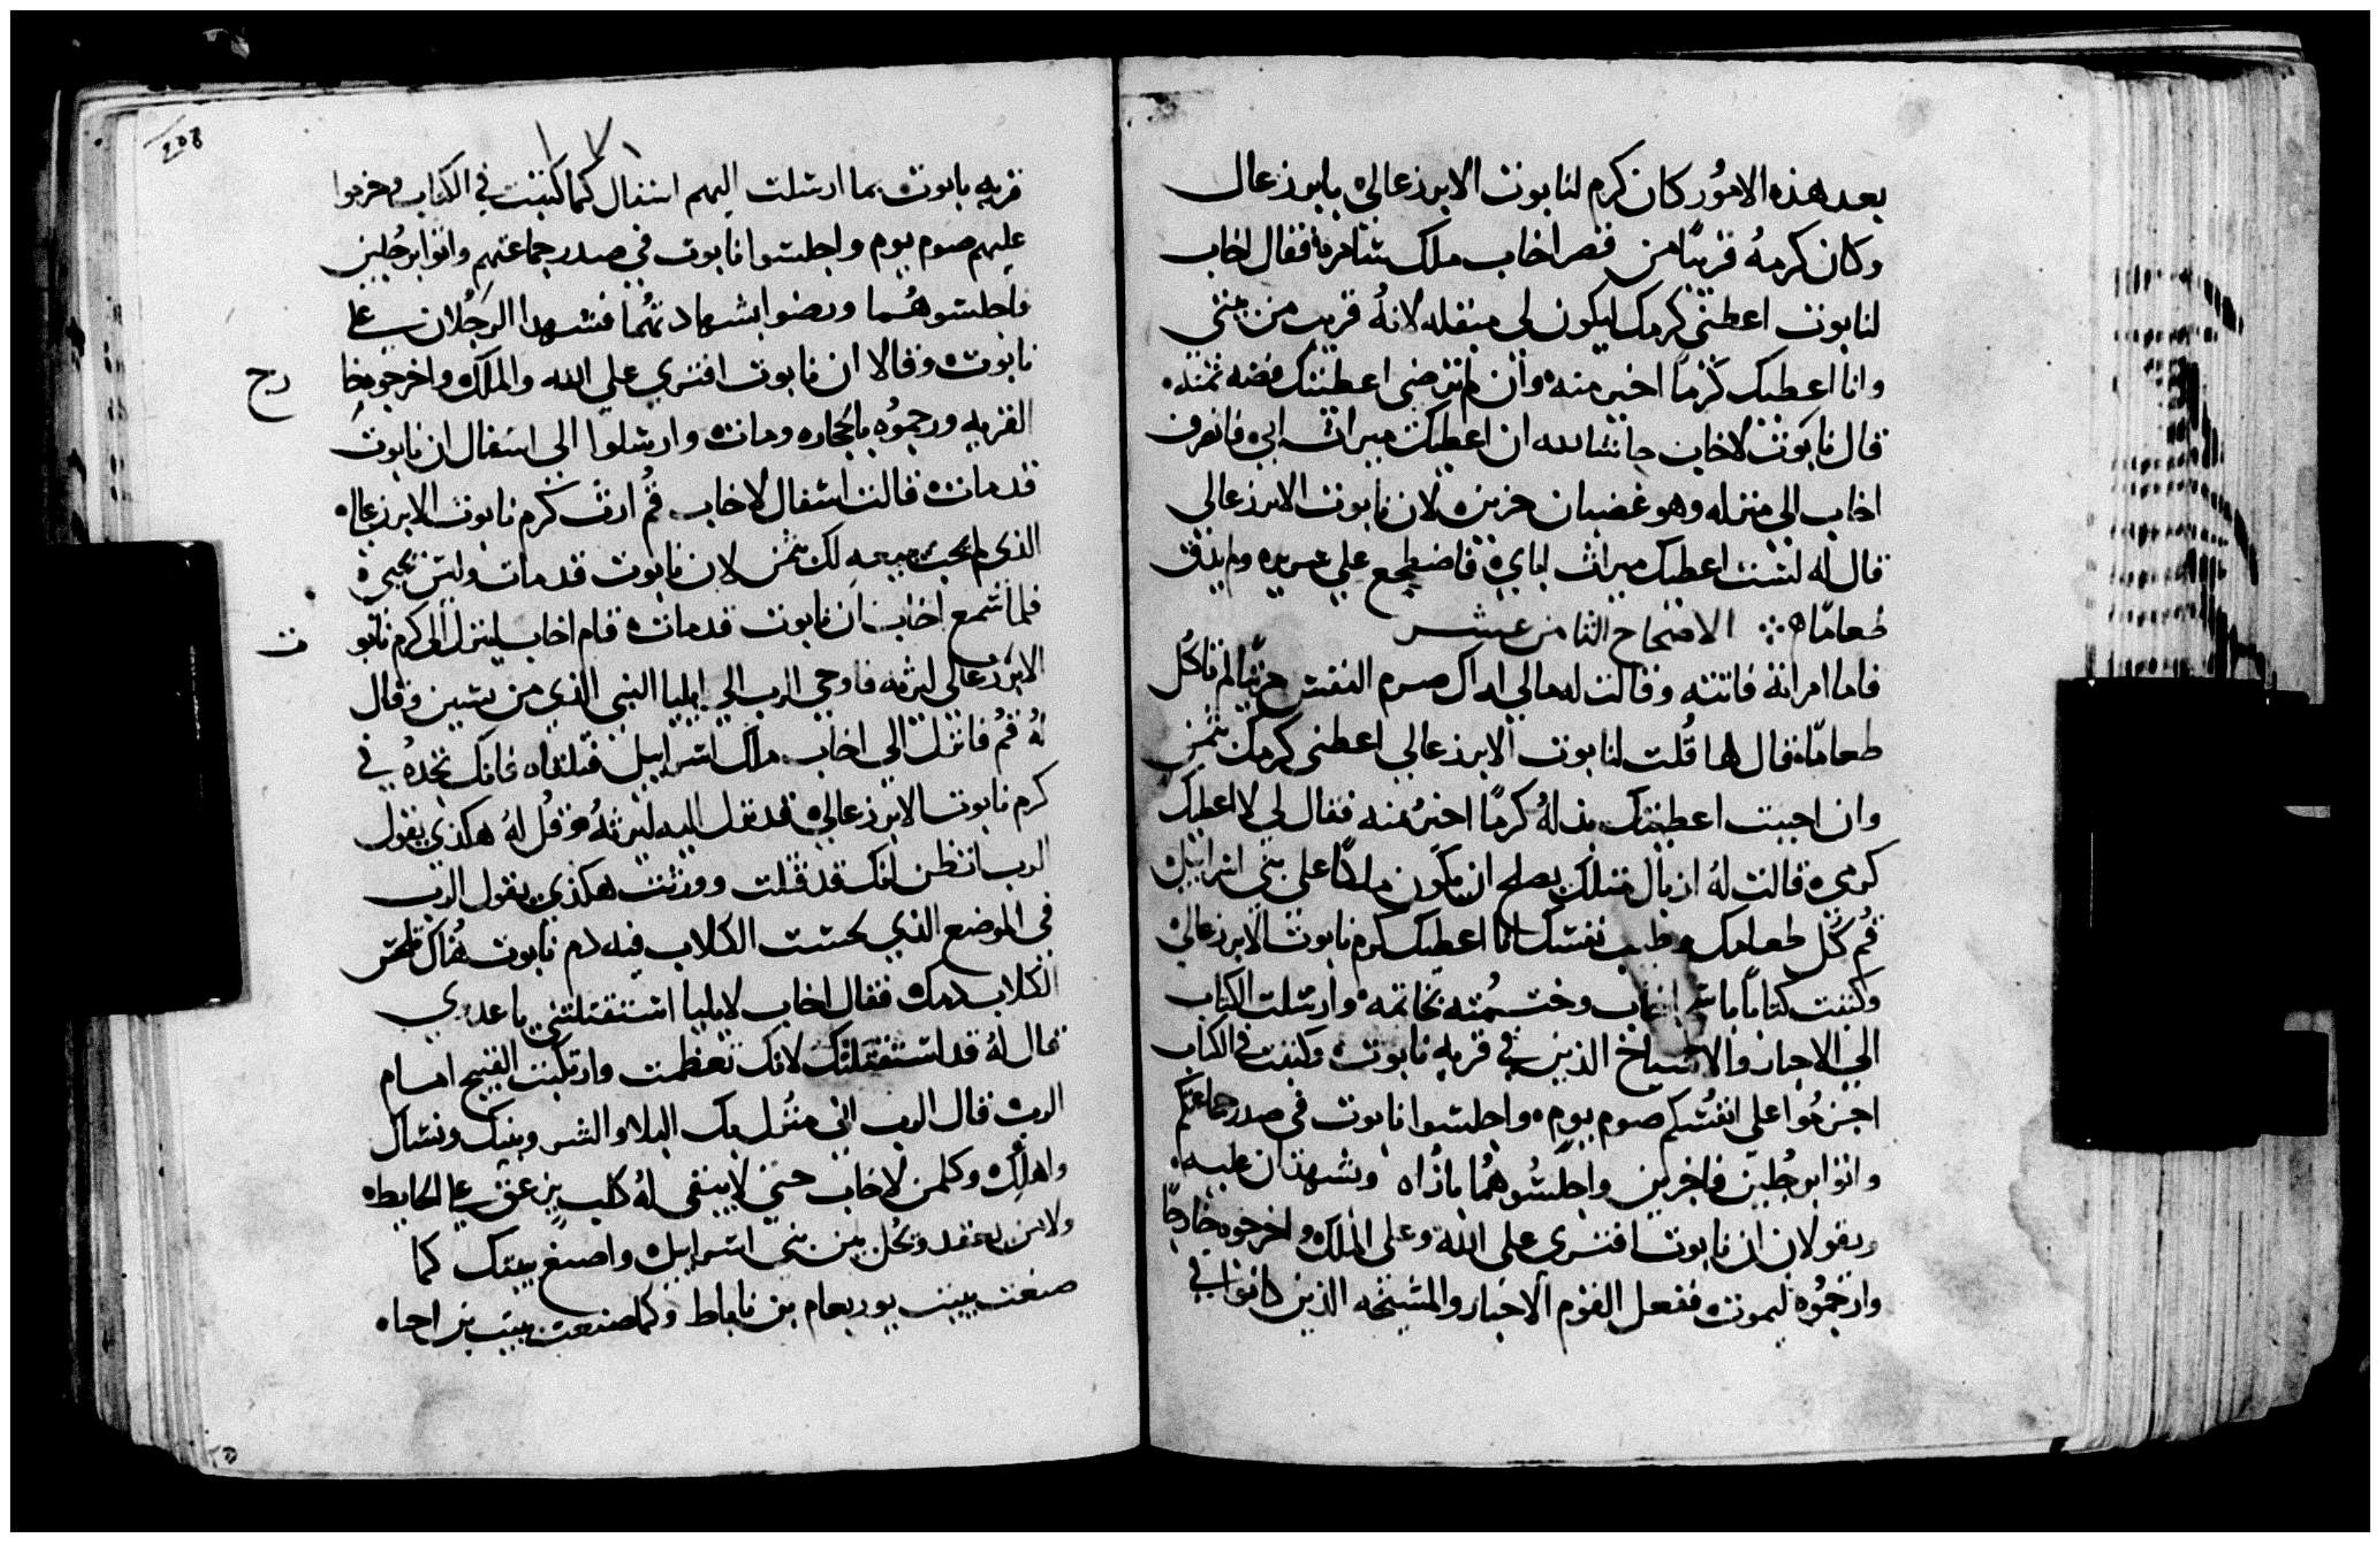 بعد هذه الامور كان كرم لنابوت الابرزعالي بابرزعال
وكان كرمه قريبًا من قصر اخاب ملك شامره فقال اخاب
لنابوت اعطني كرمك ليكون لي مبقله لانهُ قريب من بيتي
وانا اعطيك كرمًا اخير منه وان لم ترضى اعطيتك فضه ثمنه
قال نابوت لاخاب حاشا لله ان اعطيك ميراث ابي فانصرف
اخاب الي منزله وهو غضبان حزين لان نابوت الابرزعالي
قال له لست اعطيك ميراث اباي فاضطجع علي سريره ولم يذق
طعامًا الاصحاح الثامن عشر
فاما امراته فاتته وقالت له مالي اراك صرم النفس حزينًا لم تاكل
طعامًا فقال لها قُلت لنابوت الابرزعالي اعطني كرمك بثمن
وان احببت اعطيتك بدلهُ كرمًا اخيرُ منه فقال لي لا اعطيك
كرمي قالت لهُ ازبال مثلك يصلح ان يكون ملكًا على بني اسراييل
قُم كُل طعامك وطيب نفسك انا اعطيك كرم نابوت الابرزعالي
وكتبت كتابًا باسم اخاب وختمته بخاتمه وارسلت الكتاب
الي الاحبار والاشياخ الذين في قريه نابوت وكتبت في الكتاب
اجزموا على انفسكم صوم يوم واجلسوا نابوت في صدر جماعتكم
واتوا برجُلين فاخرين واجلسوهُما بازاه ويشهدان عليه
ويقولان ان نابوت افترى على الله وعلى الملك واخرجوه خارجًا
وارجموُه ليموت ففعل القوم الاحبار والمشيخه الذين كانوا في
قريه نابوت بما ارسلت اليهم اسفال كما كتبت في الكتاب وجزموا
عليهم صوم يوم واجلسوا نابوت في صدر جماعتهم واتوا برجُلين
فاجلسوهُما ورضوا بشهادتهُما فشهدا الرجُلان على
نابوت وقالا ان نابوت افترى علي الله والملك واخرجوه خا رج
القريه ورجموُه بالحجاره ومات وارسلوا الي اسفال ان نابوت
قد مات قالت اسفال لاخاب قُم ارث كرم نابوت الابرزعالي
الذي لم يحب يبيعه لك بثمن لان نابوت قد مات وليس بحي
فلما سمع اخاب ان نابوت قد مات قام اخاب لينزل الى كرم نابو ت
الابرزعالي ليرثه فاوحي الرب الي ايليا النبي الذي من تسبين وقال
لهُ قُم فانزل الي اخاب ملك اسراييل فتلقاه فانك تجدهُ في
كرم نابوت الابرزعالي قد نزل اليه ليرثهُ وقُل لهُ هكذي يقول
الرب اتظن انك قد قتلت وورثت هكذي يقول الرب
في الموضع الذي لحست الكلاب فيه دم نابوت هُناك تلحس
الكلاب دمك فقال اخاب لايليا استقتلتني يا عدوي
قال لهُ قد استقتلتك لانك تعظمت وارتكبت القبيح امام
الرب قال الرب اني منُزل بك البلا والشر وبيتك ونسلك
واهلك وكلمن لاخاب حتى لا يبقى لهُ كلب علي الحايط
بين بني اسراييل واصنع ببيتك كما
صنعت ببيت يوربعام بن ناباط وكما صنعت ببيت بن احيا
208